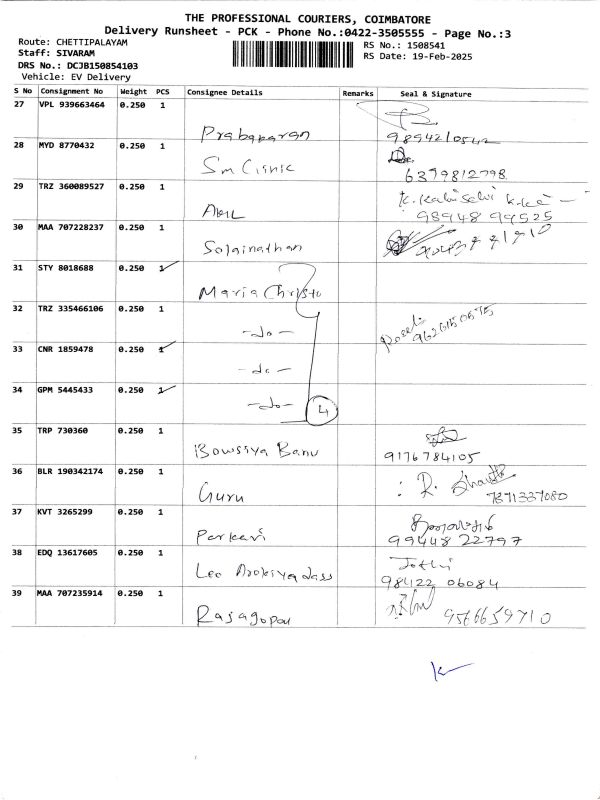 THE PROFESSIONAL COURIERS, COIMBATORE
Delivery Runsheet - PCK - Phone No.:0422-3505555 - Page No.:3
Route: CHETTIPALAYAM
Staff: SIVARAM
DRS No.: DCJB150854103
Vehicle: EV Delivery
RS No.: 1508541
RS Date: 19-Feb-2025
S No Consignment No Weight PCS Consignee Details Remarks Seal & Signature
27 VPL 939663464 0.250 1
Prabaparan 9894210542
28 MYD 8770432 0.250 1
Sm Clinic 6379812798
29 TRZ 360089527 0.250 1
K. Kalaiselvi
AKIL 98948 99525
30 MAA 707228237 0.250 1
Solainathan
31 STY 8018688 0.250 1
Maria Christo
32 TRZ 335466106 0.250 1
-do-
33 CNR 1859478 0.250 1
-do-
34 GPM 5445433 0.250 1
-do- 4
35 TRP 730360 0.250 1
Bowsiya Banu 9176784105
36 BLR 190342174 0.250 1
Guru 7871337080
37 KVT 3265299 0.250 1
Parkavi 99448 22797
38 EDQ 13617605 0.250 1
Jothi
Leo Arokiyadass 98422 06084
39 MAA 707235914 0.250 1
Rajagopal 9566659710